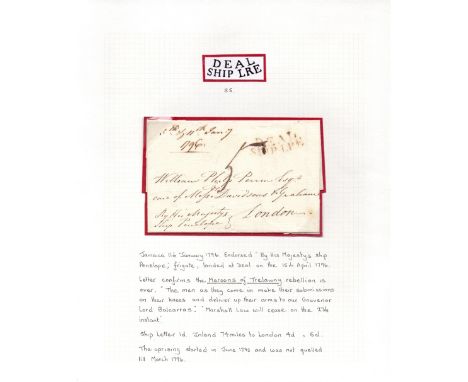 DEAL
SHIP LRE
S5.
5th & 11th Jany
1796
DEAL
SHIP LRE
5
William Philp Perrin Esqr
care of Messrs Davidsons & Graham
By His Majestys London
Ship Penelope
Jamaica 11th January 1796. Endorsed "By His Majestys Ship
Penelope", frigate, landed at Deal on the 15th April 1796.
Letter confirms the Maroons of Trelawny rebellion is
over. "The men as they come in make their submissions
on their knees and deliver up their arms to our Governor
Lord Balcarras"; "Marshall Law will cease on the
instant"
Ship Letter 1d. Inland 74 miles to London 4d = 5d.
The uprising started in June 1795 and was not quelled
till March 1796.